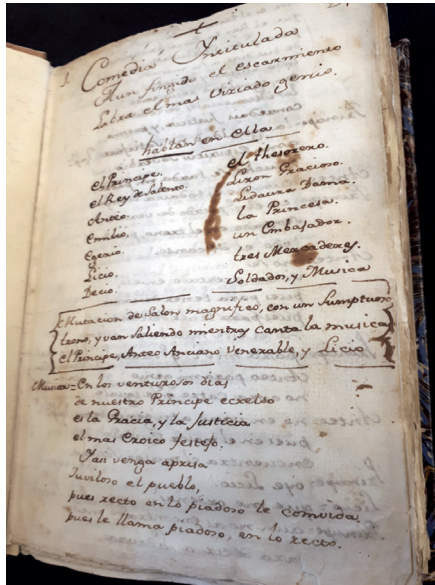 Comedia Intitulada
Aun fingido el escarmiento
Labra el mas viciado genio.
hablan en ella
el Principe.
el Rey de Salento.
Anteo.
Emilio.
Egerio.
Licio.
Decio.
el Thesorero.
Liron Gracioso.
Lidaura Dama.
la Princesa.
un Embajador.
tres Mercaderes.
Soldados, y Musica
Mutacion de Salon magnifico, con un Sumptuoso
trono, y van Saliendo mientras canta la musica
el Principe, Anteo Anciano Venerable, y Licio
Musica = En los venturosos dias
de nuestro Principe excelso
es la Gracia, y la Justicia
el mas Eroico festejo.
Y asi venga aprisa
Iuviloso el pueblo,
pues recto en lo piadoso le comvida
pues le llama piadoso, en lo recto.